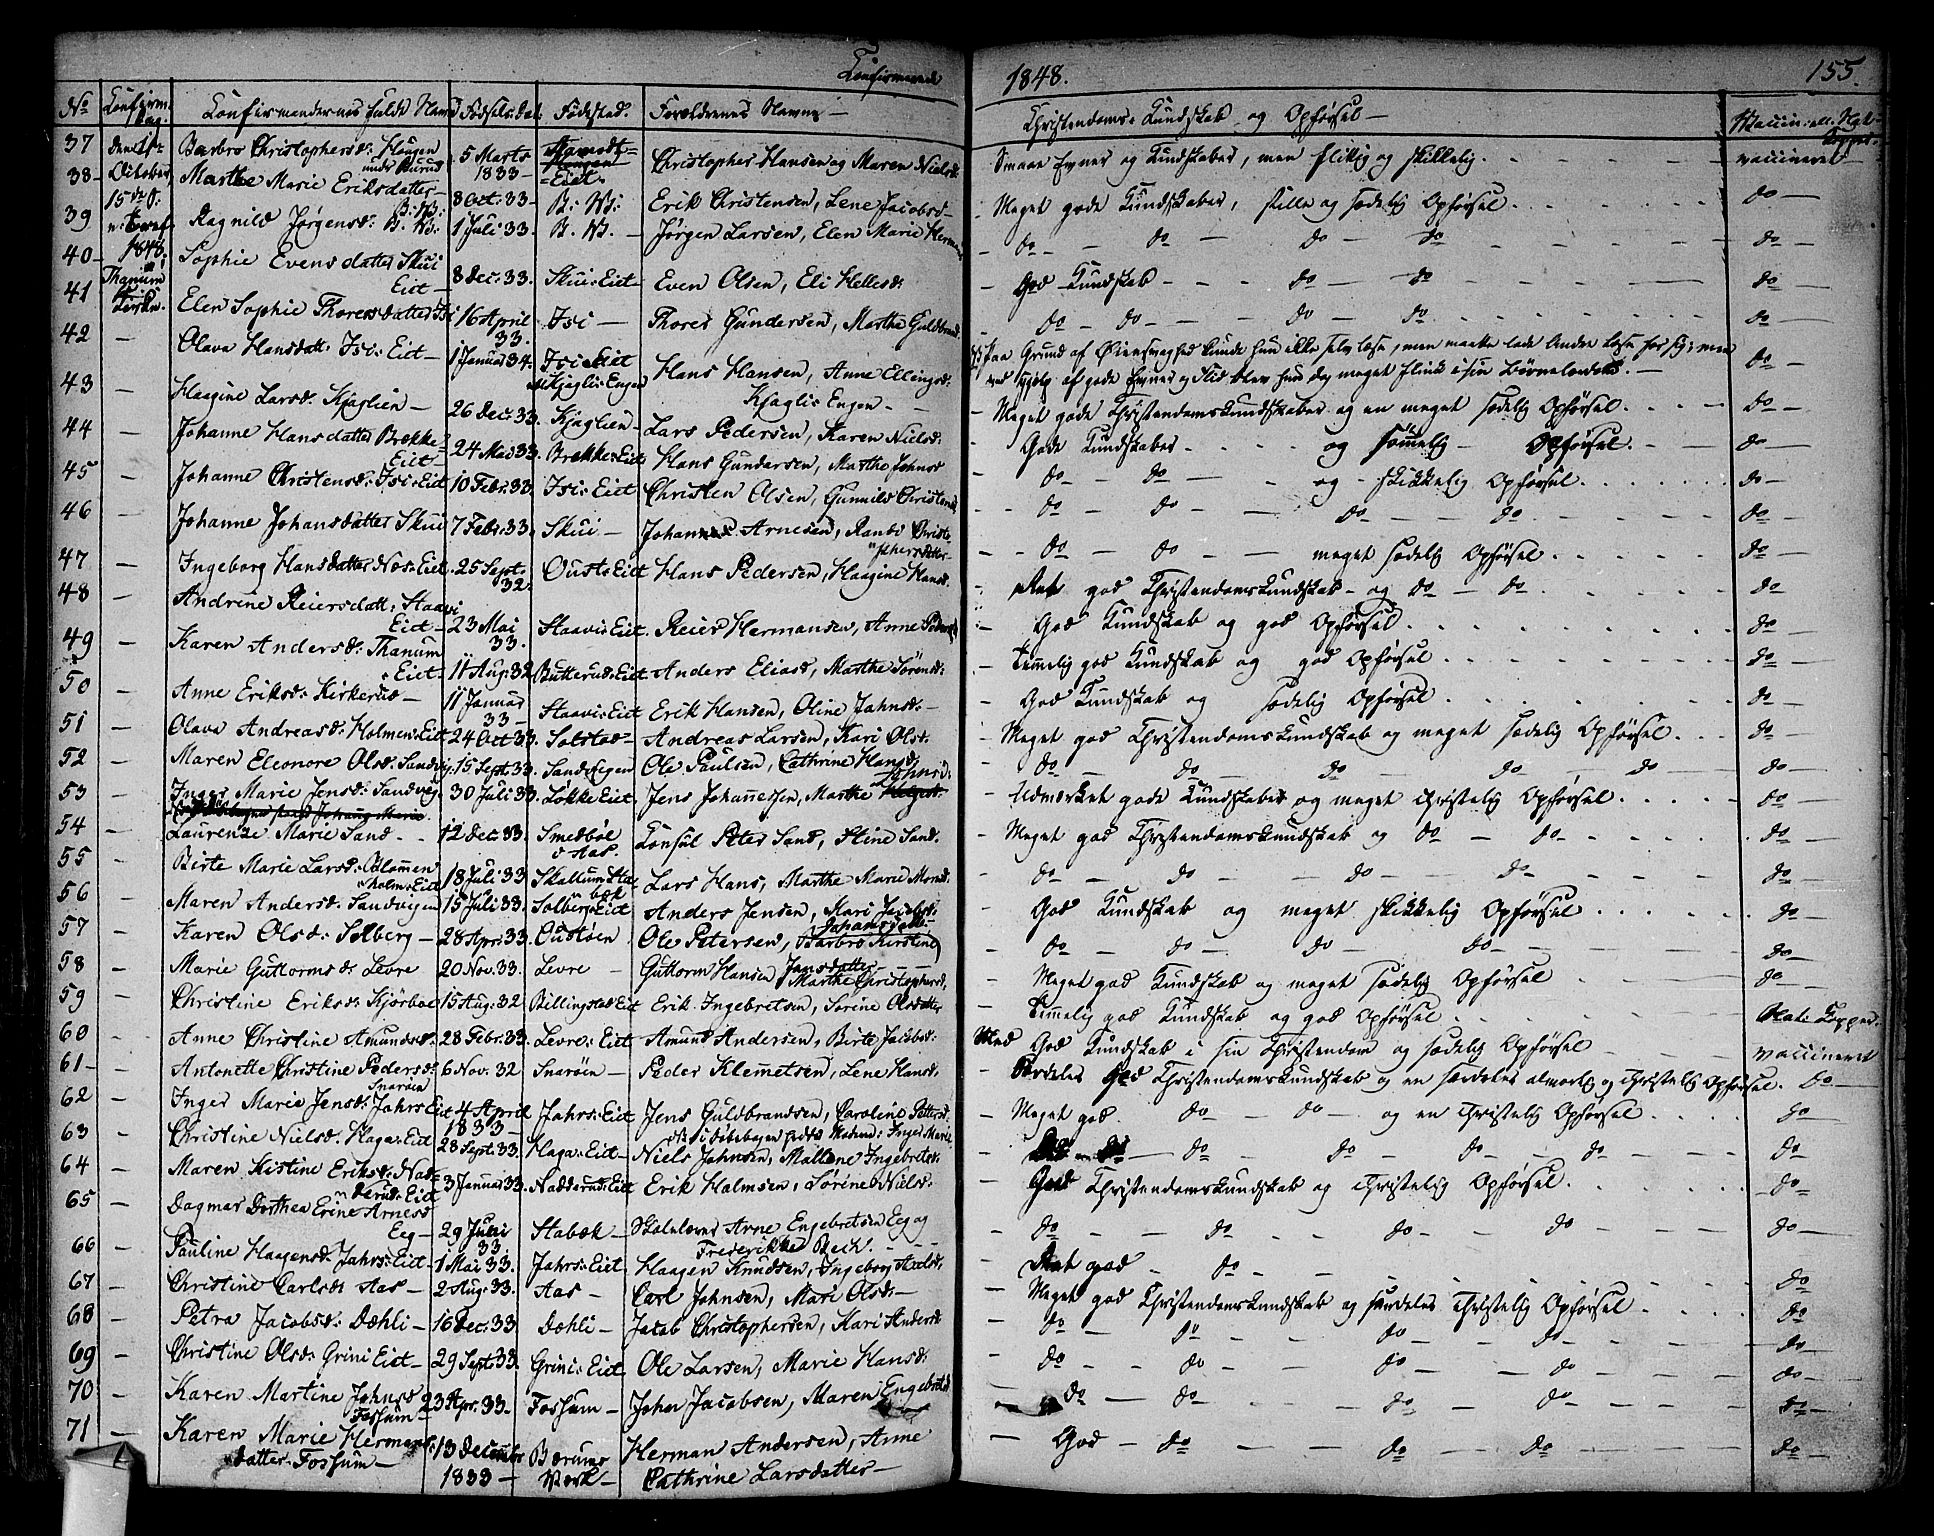 Confirmerede
1848.
155.
No
Confirm. Dag.
Confirmandernes fulde Navn
Fødsels-dat.
Fødested.
Forældrenes Navne —
Christendoms-Kundskab og Opførsel —
37 Barbro Christophersd: Haugen 5 Marts 1833 — Eiet Christopher Hansen og Maren Nielsd: Smaae Evner og Kundskaber, men flittig og skikkelig vaccineret
38 — Marthe Marie Eriksdatter B: W: 8 Oct: 33 — B: W: Erik Christensen, Lene Jacobsd — Meget gode Kundskaber, stille og sædelig Opførsel do —
39 Ragnild Jørgensd: B. W: 1 Juli 33. B. W. — Jørgen Larsen, Elen Marie do — do — do — do do —
40 — Sophie Evensdatter Skui Eiet — 8 Dec: 33. Skui: Eiet — Even Olsen, Eli Hellesd: God Kundskab do — do do —
41 Elen Sophie Thoresdatter Isi 16 April 33. Isi — Thores Gundersen, Marthe do — do — do — do do —
42 — Olava Hansdatt: Isi: Eiet — 1 Januar 34. Isi Eiet Hans Hansen, Anne Ellingsd: Kjaglis Engen — Paa Grund af Øiensvaghed kunde hun ikke selv læse, men maatte lade Andre læse for sig; men
ved Hjelp af gode Evner og Flid blev hun dog meget flink i sin Børnelærdom. — do —
43 — Haagine Larsd: Kjaglien — 26 Dec: 33. Kjaglien — Lars Pedersen, Karen Nielsd: Meget gode Christendomskundskaber og en meget sædelig Opførsel do —
44 — Johanne Hansdatter Brække Eiet — 24 Mai 33. Brække: Eiet Hans Gundersen, Marthe Johnsd Gode Kundskaber og sømmelig — Opførsel. do —
45 — Johanne Christensd: Isi: Eiet 10 Febr: 33. Isi: Eiet Christen Olsen, Gunnild do — do — og skikkelig Opførsel do —
46 — Johanne Johansdatter Skui 7 Febr: 33. Skui — Johannes Arnesen, Randi do do — do — do do —
47 — Ingeborg Hansdatter Næs: Eiet 25 Sept: 32. Oust: Eiet Hans Pedersen, Haagine Hansd: do — do — meget sædelig Opførsel do —
48 — Andrine Reiersdatt: Staavi Eiet — 23 Mai 33. Staavi: Eiet Reier Hermansen, Anne god Christendomskundskab — og do — do do
49 — Karen Andersd: Thanum Eiet — 11 Aug: 32 Butterud: Eiet Anders Eliasd, Marthe Sørensd: God Kundskab og god Opførsel do —
50 — Anne Eriksd: Kirkerud — 11 Januar 33 — Staavi: Eiet Erik Hansen, Oline Jahnsd: — Temmelig god Kundskab og god Opførsel do —
51 — Olava Andreasd: Holmen: Eiet 24 Oct 33. Solstad — Andreas Larsen, Kari Olsd: God Kundskab og sædelig Opførsel do —
52 — Maren Eleonore Olsd: Sandvig. 15 Sept: 33. Sandvigen Ole Paulsen, Cathrine Hansd Meget god Christendomskundskab og meget sædelig Opførsel do —
53 — Inger Marie Jensd: Sandvig. 30 Juli 33. Løkke Eiet Jens Johannesen, Marthe Johnsd: do — do — do — do — do — do —
54 — Laurenze Marie Sand — 12 Dec: 33. Smedbøl Aas. Consul Peter Sand, Stine Sand. Udmærket gode Kundskaber og meget christelig Opførsel do —
55 — Birte Marie Larsd: 18 Juli 33. Skallum Lars Hans, Marthe Marie Meget god Christendomskundskab og do — do — do —
56 — Maren Andersd: Sandvigen 15 Juli 33. Solberg: Eiet Anders Jensen, Kari Jacobsd: do — do — do — do do —
57 — Karen Olsd: Solberg — 28 Apr: 33. Oustøen Ole Petersen, Barbro Kirstine Johansdatt: God Kundskab og meget skikkelig Opførsel do —
58 — Marie Guttormsd: Levre 20 Nov: 33. Levre — Guttorm Hansen, Marthe Christophersd, do — do — do — do — do —
59 — Christine Eriksd: Kjørboe 15 Aug: 32 Billingstad: Eiet Erik Ingebretsen, Sørine Olsdatter Meget god Kundskab og meget sædelig Opførsel do —
60 — Anne Christine Amundsd: 28 Febr: 33. Levre: Eiet Amund Andersen, Birte Jacobsd: Temmelig god Kundskab og god Opførsel
61 — Antonette Christine Pedersd: Snarøen 6 Nov: 32 Snarøen Peder Klemmetsen, Lene Hansd. Med God Kundskab i sin Christendom og sædelig Opførsel vaccineret
62 — Inger Marie Jensd: Jahrs Eiet 4 April 1833 — Jahrs: Eiet Jens Guldbrandsen, Caroline Særdeles God Christendomskundskab og en særdeles alvorlig og christelig Opførsel. do —
63 — Christine Nielsd: Haga: Eiet 28 Sept: 33. Haga: Eiet — Niels Johnsen, Mallene Ingebretsd: Meget god do — do — og en christelig Opførsel do —
64 — Maren Kistine Eriksd: Nadderud: Eiet 3 Januar 33. Nadderud: Eiet Erik Halmsen, Sørine Nielsd: do — do — do — do — do —
65 — Dagmar Dorthea Erine Arnesd Eeg — 29 Juli 33. Stabæk — Skolelærer Arne Engebretsen Eeg og Frederikke Bech. God Christendomskundskab og christelig Opførsel do —
66 — Pauline Haagensd: Jahrs: Eiet — 1 Mai 33. Jahrs: Eiet Haagen Knudsen, Ingeborg do — do — do — do — do —
67 — Christine Carlsd: Aas — 2 Aug: 33. Aas — Carl Johnsen, Mari Olsd: — god do — do
68 — Petra Jacobsd: Dæhli — 16 Dec: 33 Dæhli — Jacob Christophersen, Kari Andersd Meget god Christendomskundskab og særdeles christelig Opførsel do —
69 — Christine Olsd: Grini Eiet — 29 Sept 33. Grini: Eiet Ole Larsen, Marie Hansd: do — do — do — do — do —
70 — Karen Martine Johnsd Fossum — 23 Apr: 33 — Fossum — John Jacobsen, Maren Engebretsd do — do — do — do — do —
71 — Karen Marie Herman- datter Fossum — 13 December 1833 — Bærums Værk — Herman Andersen, Anne Cathrine Larsdatter — God — do — do — do — do —